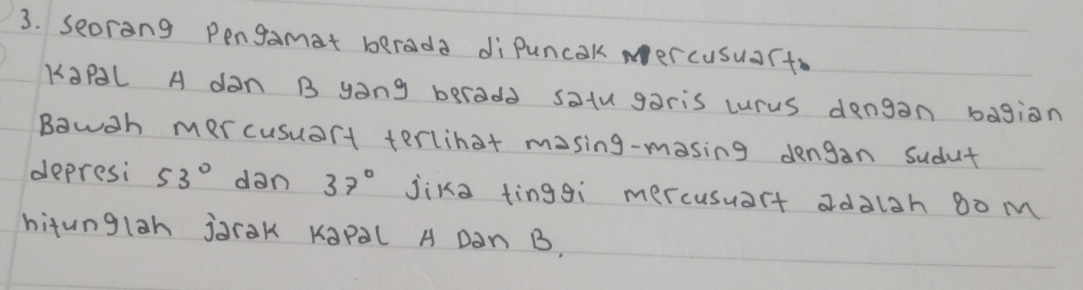 3. Seorang Pengamat berada dipuncak Mercusuart.
Kapal A dan B yang berada satu garis lurus dengan bagian
Bawah mercusuart terlihat masing-masing dengan sudut
depresi 53° dan 37° jika tinggi mercusuart adalah 80 M
hitunglah jarak Kapal A Dan B.